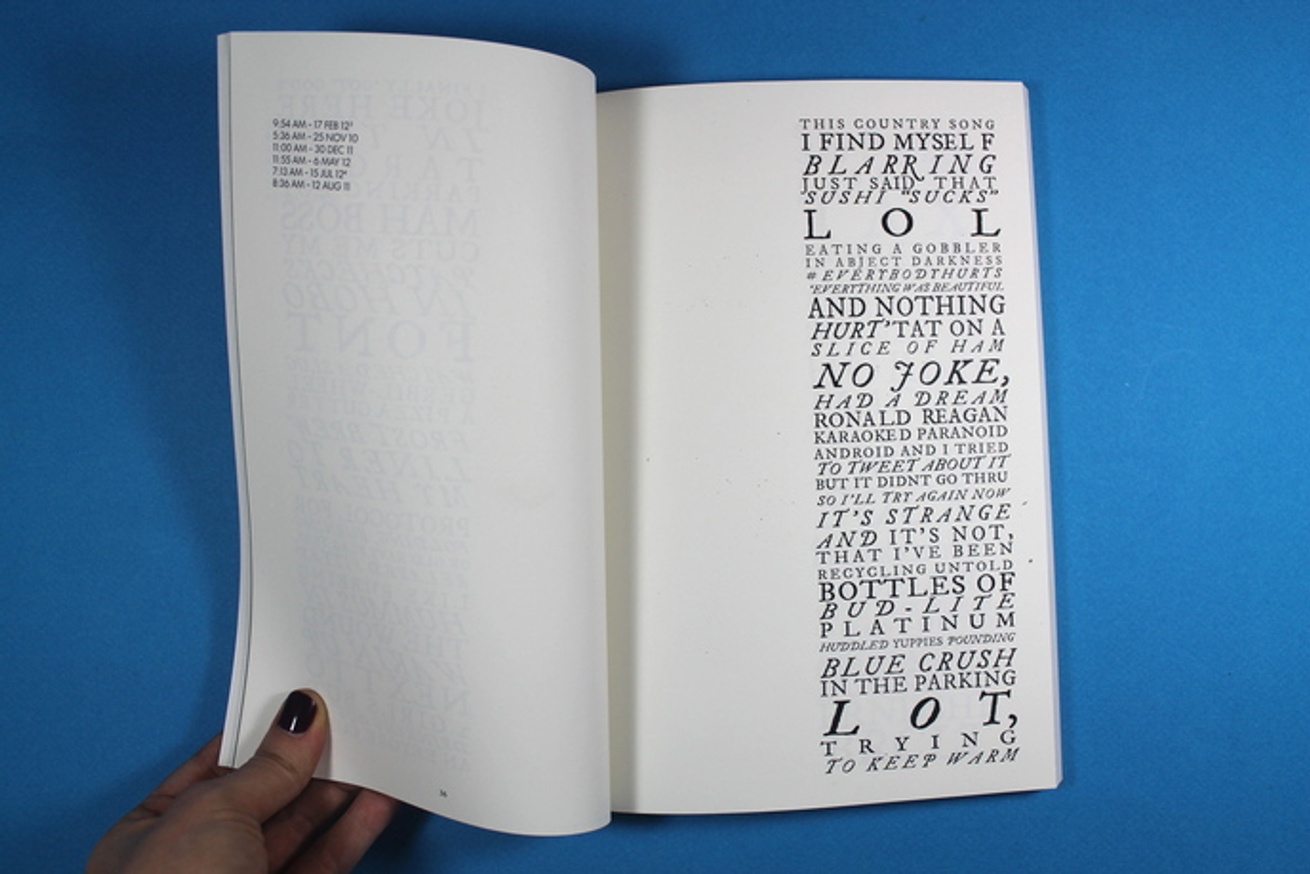 9:54 AM - 17 FEB 12³
5:36 AM - 25 NOV 10
11:00 AM - 30 DEC 11
11:55 AM - 6 MAY 12
7:13 AM - 15 JUL 12⁴
8:36 AM - 12 AUG 11
36
THIS COUNTRY SONG
I FIND MYSELF
BLARRING
JUST SAID THAT
"SUSHI "SUCKS"
L O L
EATING A GOBBLER
IN ABJECT DARKNESS
#EVERYBODYHURTS
"EVERYTHING WAS BEAUTIFUL
AND NOTHING
HURT" TAT ON A
SLICE OF HAM
NO JOKE,
HAD A DREAM
RONALD REAGAN
KARAOKED PARANOID
ANDROID AND I TRIED
TO TWEET ABOUT IT
BUT IT DIDNT GO THRU
SO I'LL TRY AGAIN NOW
IT'S STRANGE
AND IT'S NOT,
THAT I'VE BEEN
RECYCLING UNTOLD
BOTTLES OF
BUD-LITE
PLATINUM
HUDDLED YUPPIES POUNDING
BLUE CRUSH
IN THE PARKING
LOT,
TRYING
TO KEEP WARM